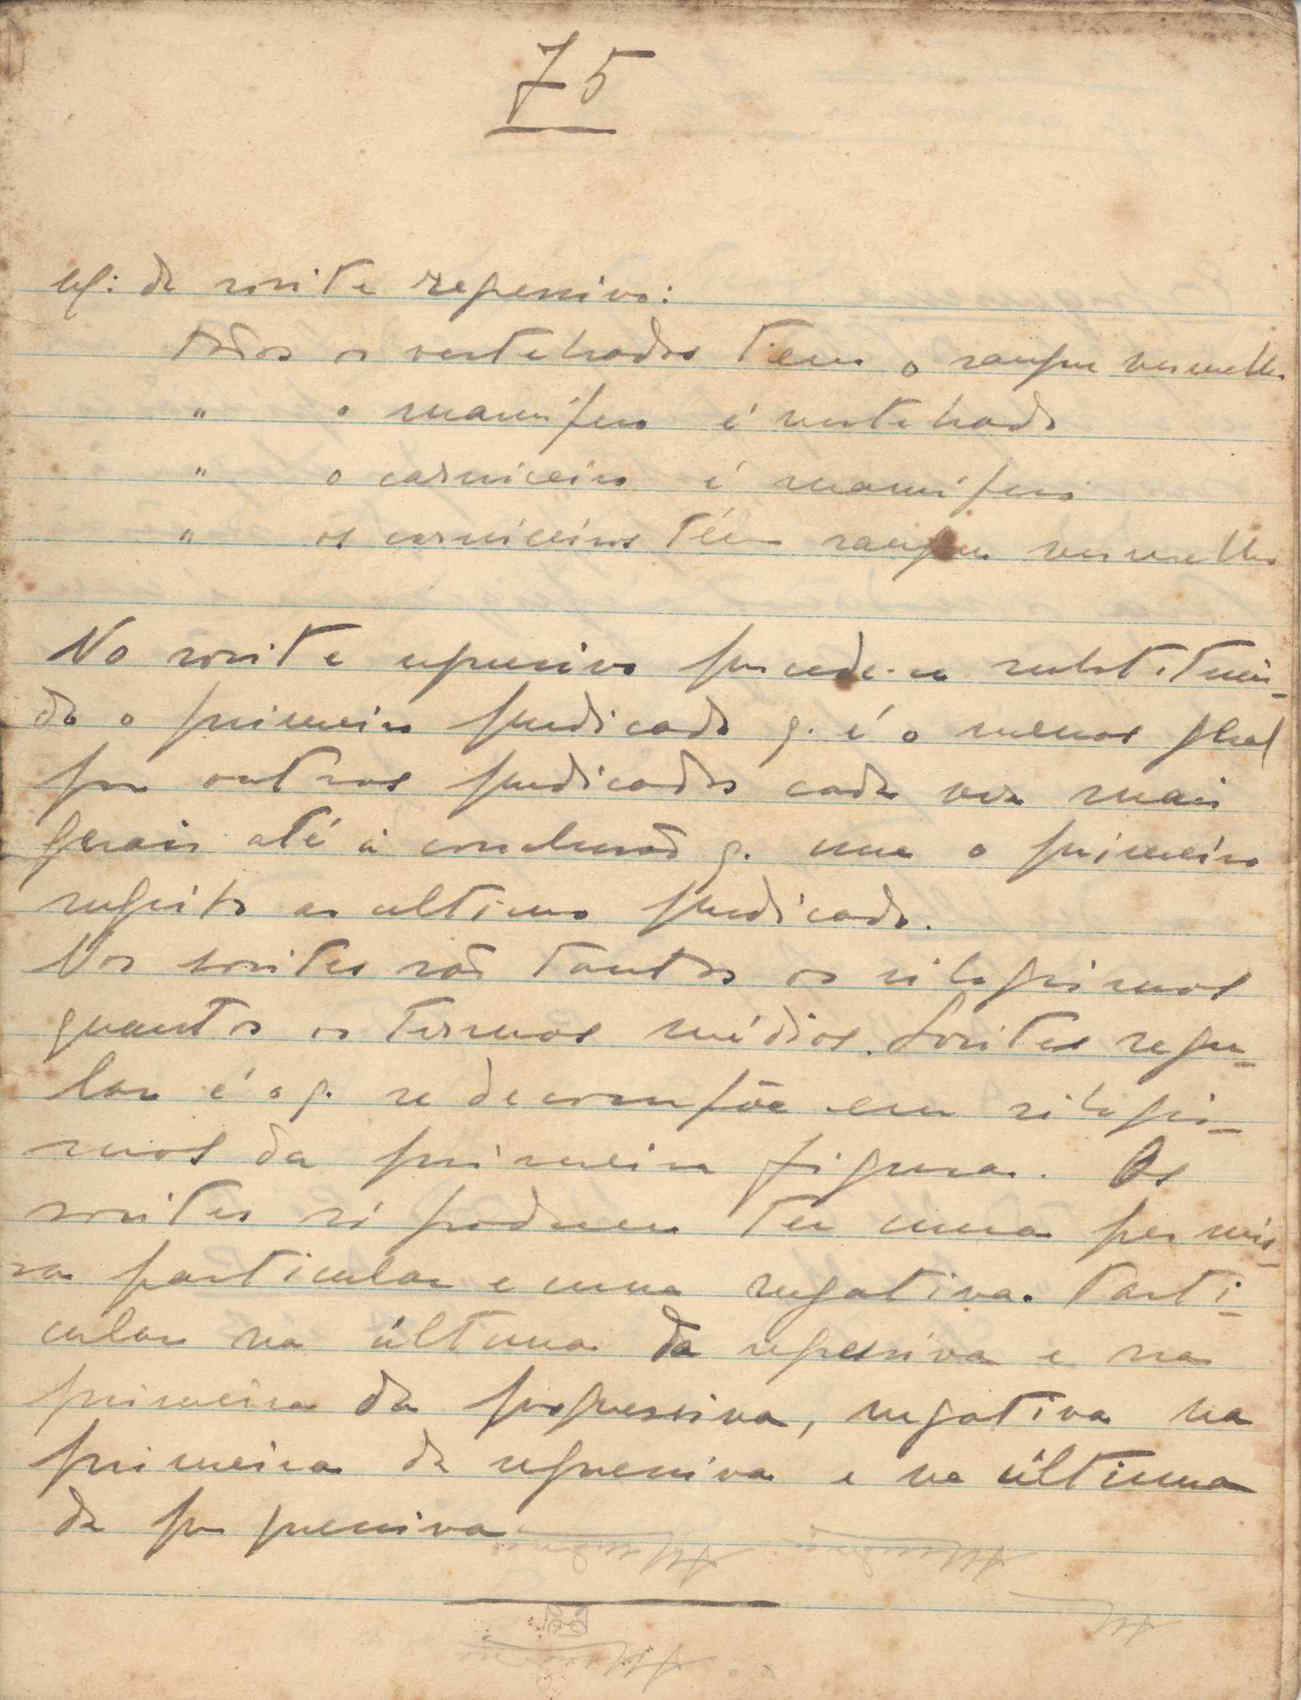 75
Ex: de sorite regressivo:
Todos os vertebrados tem o sangue vermelho
" o mamifero é vertebrado
" o carniceiro é mamifero
" os carniceiros têm sangue vermelho
No sorite regressivo procede-se substituin-
do o primeiro predicado q. é o menos geral
por outros predicados cada vez mais
gerais até á conclusão q. une o primeiro
sugeito ao ultimo predicado.
Nos sorites são tantos os silogismos
quantos os termos médios. Sorites regu-
lar é o q. se decompõe em silogis-
mos da primeira figura. Os
sorites só podem ter uma premis-
sa particular e uma negativa. Parti-
cular na última da regressiva e na
primeira da progressiva, negativa na
primeira da regressiva e na última
da progressiva